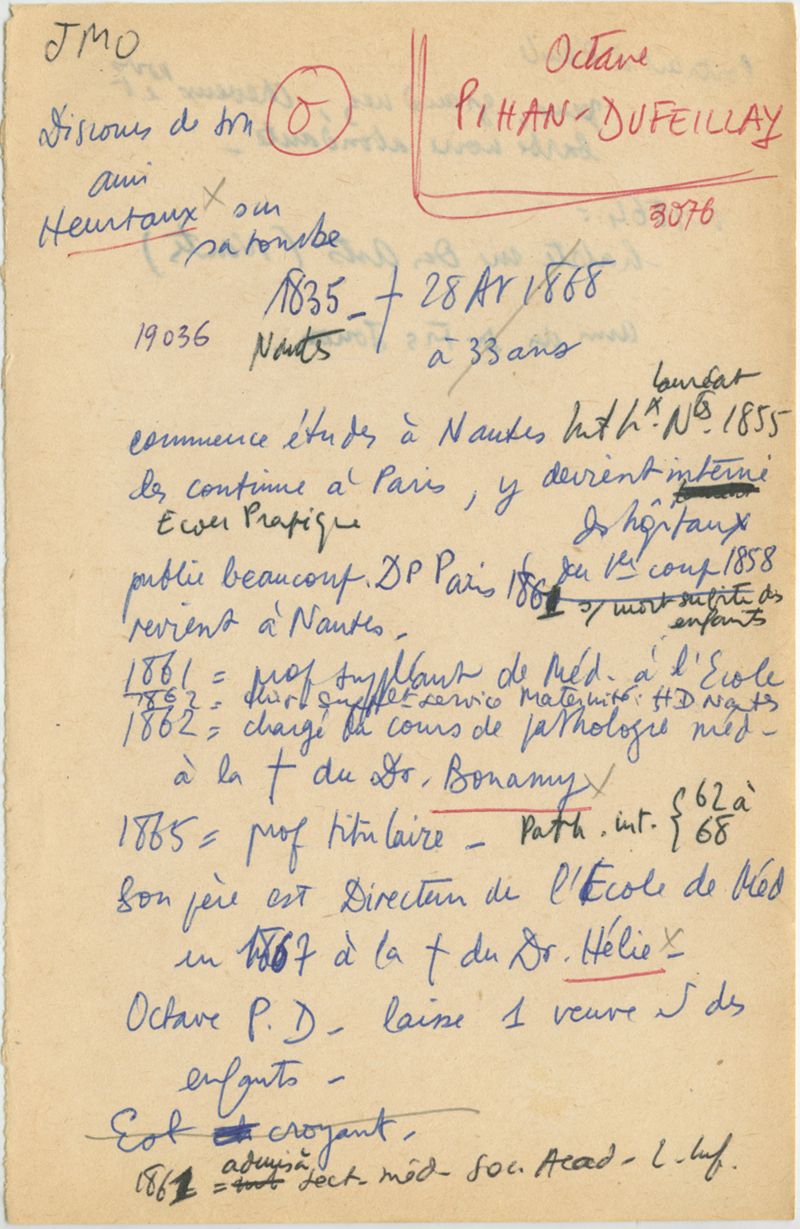 JMO
Octave
PIHAN-DUFEILLAY
3076
Discours de son
ami
Heurtaux x sur
sa tombe
1835 - † 28 Av 1868
19036
Nantes
à 33 ans
lauréat
commence études à Nantes Int hx. Ntes. 1855
les continue à Paris, y devient interne
Ecole Pratique
ds hôpitaux
du 1er coup 1858
publie beaucoup. DP Paris 1861 s/ mort subite des
enfants
revient à Nantes.
1861 = prof suppléant de Méd. à l'Ecole
1862 = suppl et service Maternité. HD Nantes
1862 = chargé du cours de pathologie méd-
à la † du Dr. Bonamy x
1865 = prof titulaire - Path. int. { 62 à
68
Son père est Directeur de l'Ecole de Méd
en 1867 à la † du Dr. Hélie x -
Octave P. D - laisse 1 veuve et des
enfants -
Est croyant.
1861 = admis à sect- méd- Soc. Acad- L- Inf.